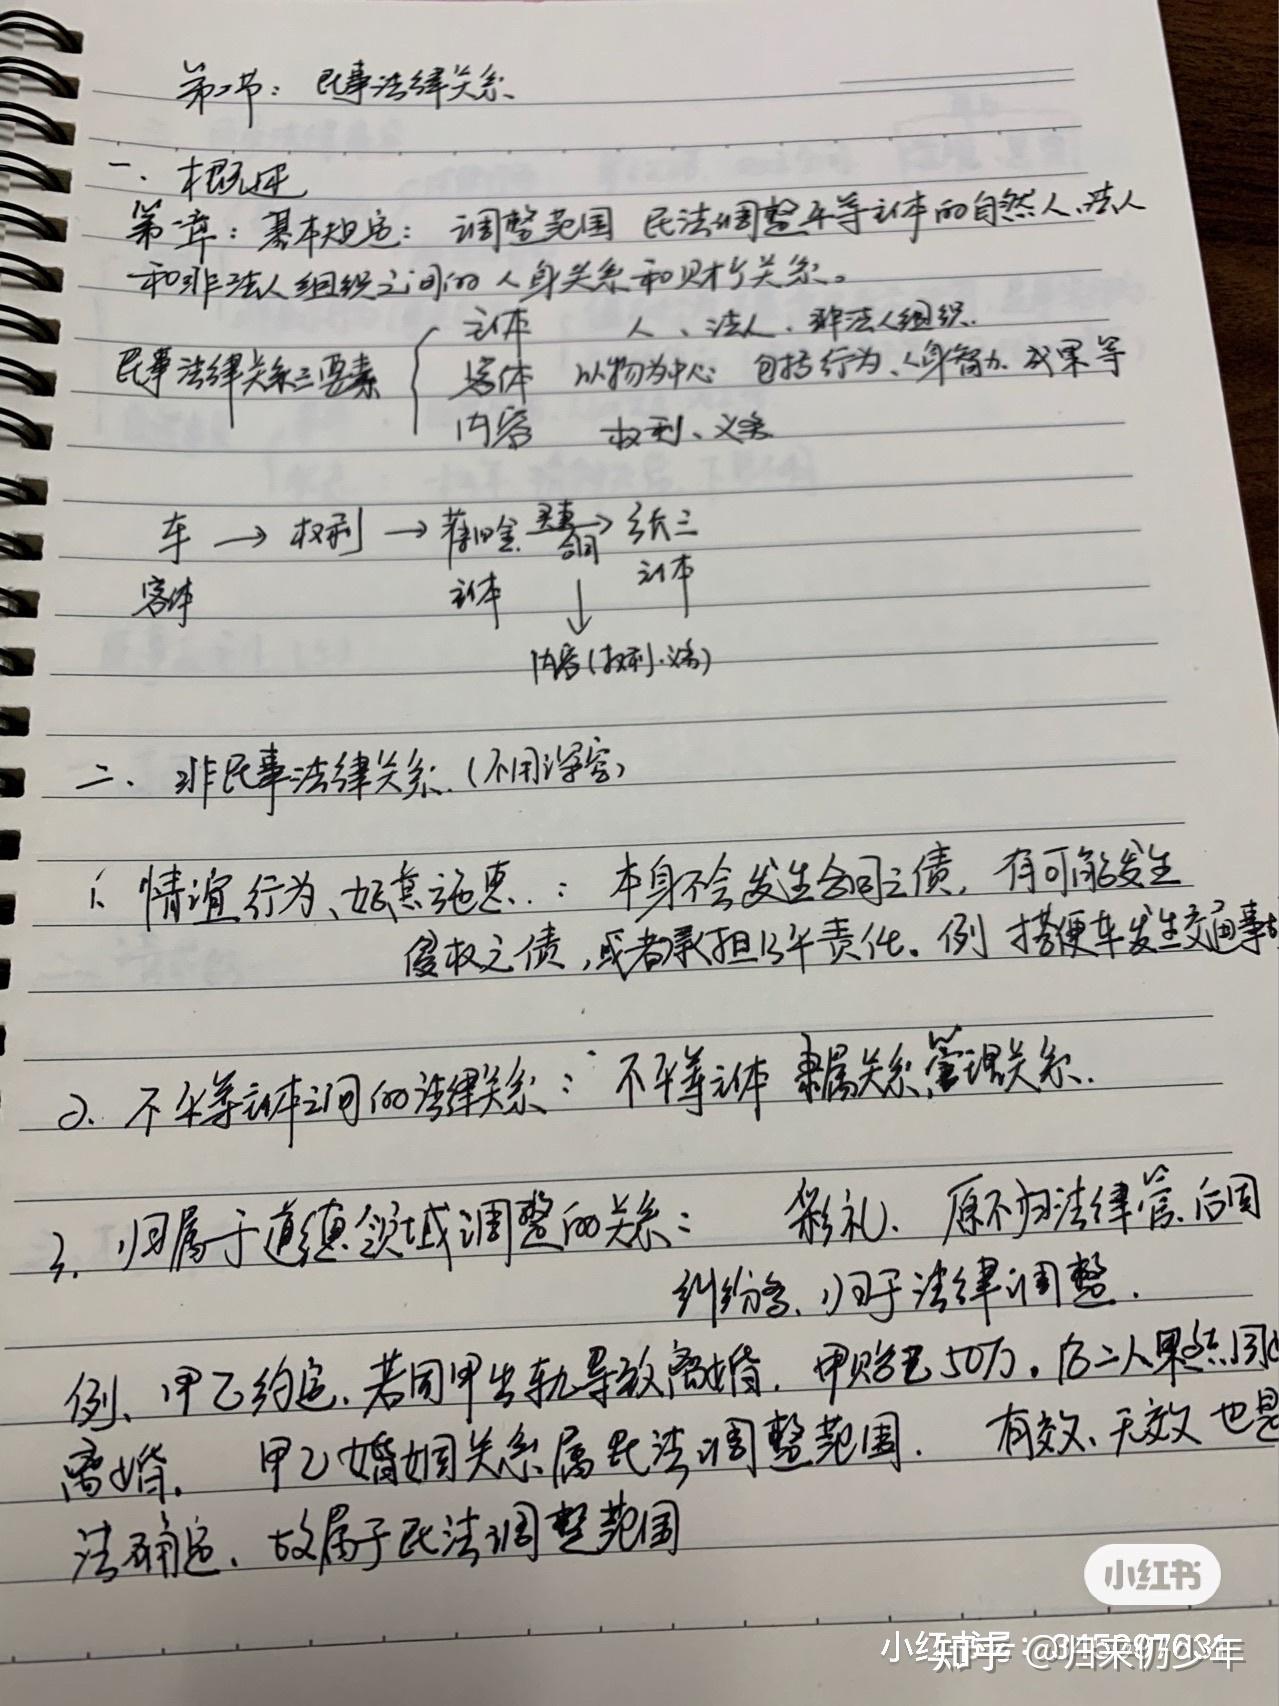 第二节：民事法律关系
一、概述
第一章：基本规定：调整范围 民法调整平等主体的自然人、法人
和非法人组织之间的人身关系和财产关系。
民事法律关系三要素
主体 人、法人、非法人组织.
客体 以物为中心 包括行为、人身智力成果等
内容 权利、义务
车 → 权利 → 蒋旧金 买卖合同 → 张三
客体 主体 主体
内容(权利.义务)
二、非民事法律关系(不用深究)
1. 情谊行为、好意施惠：本身不会发生合同之债，有可能发生
侵权之债，或者承担公平责任。例 搭便车发生交通事故
2. 不平等主体之间的法律关系：不平等主体 隶属关系,管理关系.
3. 归属于道德领域调整的关系： 彩礼、原不归法律管.后因
纠纷多、归于法律调整.
例、甲乙约定、若因甲出轨导致离婚，甲赔乙50万。后二人果然因此
离婚. 甲乙婚姻关系属民法调整范围. 有效、无效也是
法确定、故属于民法调整范围
小红书
小红书号：345297631
知乎 @归来仍少年